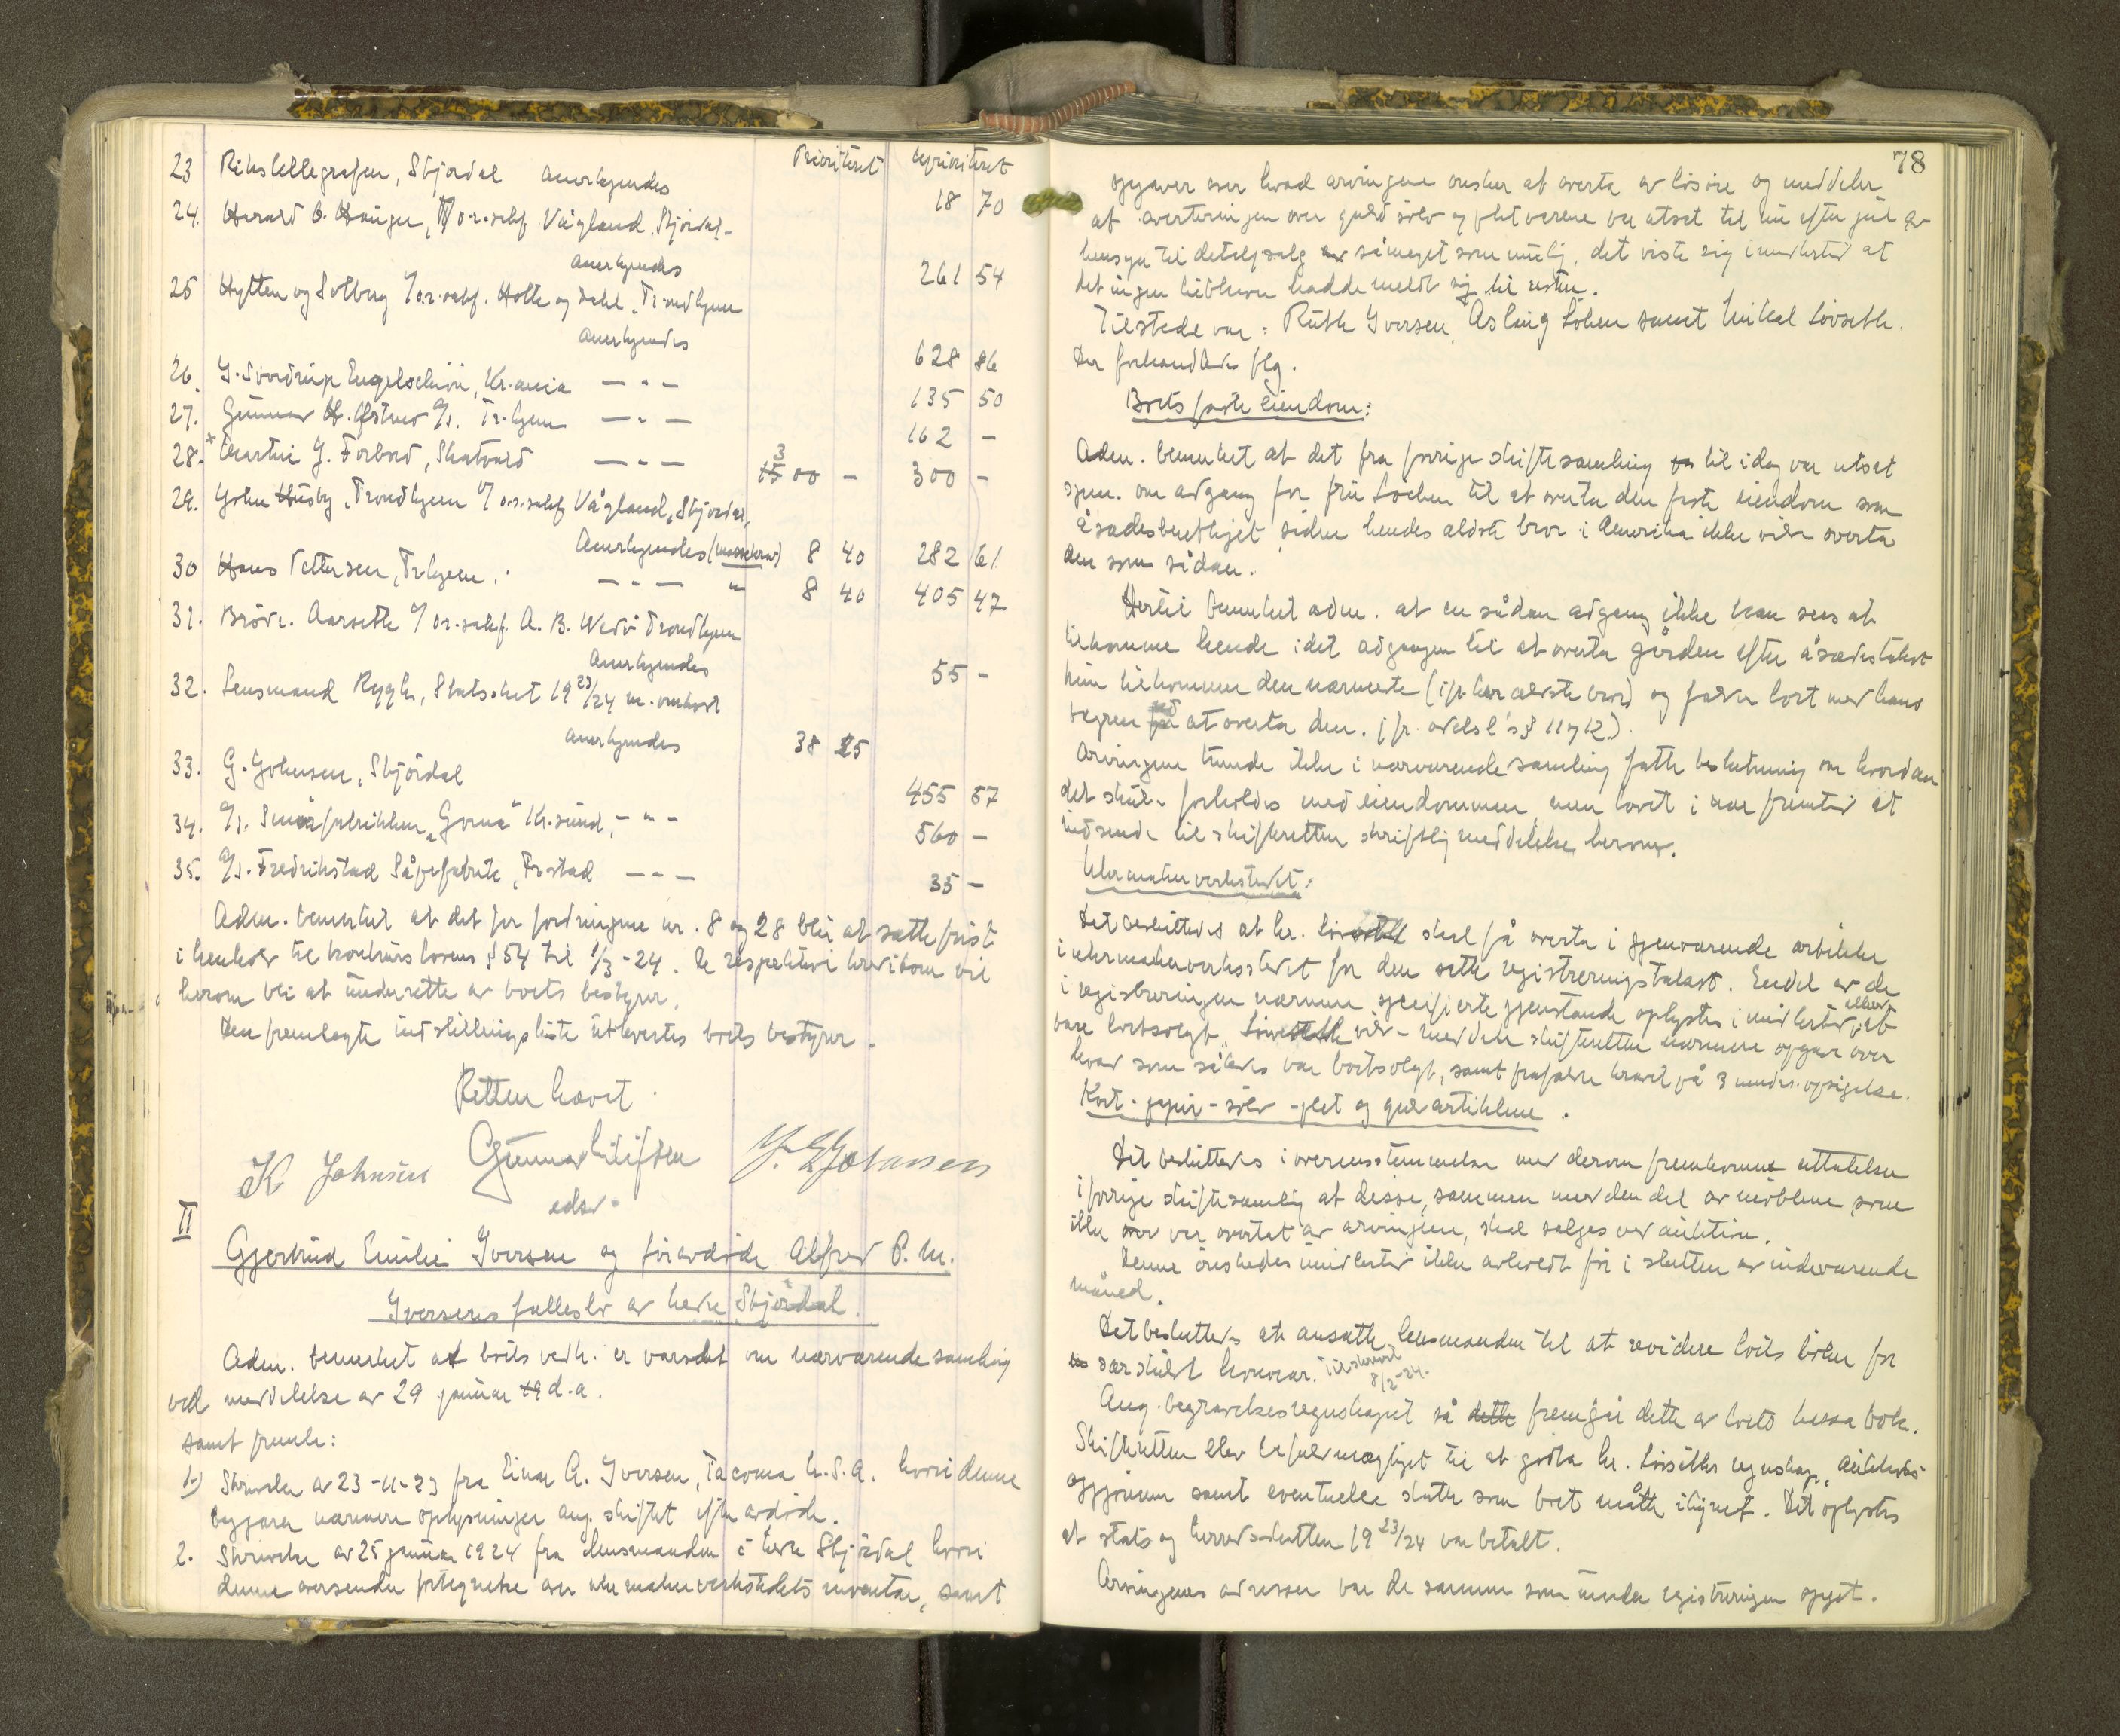 Prioritert uprioritert
23 Rikstellegrafen, Stjørdal anerkjendes 18 70
24. Harald O. Hauger, v/ o.r.sakf. Vågland, Stjørdal-
anerkjendes 261 54
25 Hytten og Solberg v/ o.r.sakf. Holte og Dahl, Trondhjem
anerkjendes 628 86
26. G. Sverdrup Engelschiøn, Kr.ania — " — 135 50
27. Gunnar H. Øfstaas A/S. Tr.hjem — " — 162 -
28. * Martin G. Forbord, Skatvald — " — 300 - 300 -
29. John Husby, Trondhjem v/ o.r.sakf Vågland, Stjørdal,
Anerkjendes (massekrav) 8 40 282 61
30 Hans Pettersen, Tr.hjem. — " — " 8 40 405 47
31. Brødr. Aarseth v/ o.r.sakf. A. B. Wedø Trondhjem
anerkjendes 55 -
32. Lensmand Rygh, Statsskat 19 23/24 m. omkost
anerkjendes 38 25
33. G. Johnsen, Stjørdal 455 57
34. A/S. Smørfabrikken "Goma" Kr.sund, - " - 560 -
35. A/S. Fredrikstad Såpefabrik, Fr.stad — " — 35 -
Adm. bemerket at det for fordringene nr. 8 og 28 blir at sætte frist
i henhold til konkurslovens § 54 til 1/3 - 24. De respektive kreditorer vil
herom bli at underrette av boets bestyrer.
Den fremlagte indstillingsliste utlevertes boets bestyrer.
Retten hævet.
K Johnsen Gunnar J. Johansen
edsv.
II
Gjertrud Emilie Iversen og foravdøde Alfred P. M.
Iversens fællesbo av nedre Stjørdal.
Adm. bemerket at boets vedk. er varslet om nærværende samling
ved meddelelse av 29 januar d.a.
samt freml:
1.) Skrivelse av 23-11-23 fra Einar A. Iversen, Tacoma U.S.A. hvori denne
begjærer nærmere oplysninger ang. skiftet efter avdøde.
2. Skrivelse av 25 januar 1924 fra lensmanden i nedre Stjørdal hvori
denne oversender fortegnelse over urmakerverkstedets inventar, samt
78
opgaver over hvad arvingene ønsker at overta av løsøre og meddeler
at averteringen over guld sølv og pletvarene var utsat til nu efter jul av
hensyn til detaljsalg såmeget som mulig, det viste sig imidlertid at
det ingen liebhavere hadde meldt sig til resten.
Tilstede var: Ruth Iversen, Aslaug Løhen samt Mikal Løvseth.
Der forhandledes flg.
Boets faste eiendom:
Adm. bemerket at det fra forrige skiftesamling til idag var utsat
spm. om adgang for fru Løchen til at overta den faste eiendom som
åsædesberettiget siden hendes ældste bror i Amerika ikke vilde overta
den som sådan.
Hertil bemerket adm. at en sådan adgang ikke kan sees at
tilkomme hende idet adgangen til at overta gården efter åsædestakst
kun tilkommer den nærmeste (i fr. her ældste bror) og falder bort med hans
vegren ved at overta den. jfr. odelsl's § 11 og 12.)
Arvingene kunde ikke i nærværende samling fatte beslutning om hvordan
det skulde forholdes med eiendommen, men lovet i nær fremtid at
indsende til skifteretten skriftlig meddelelse herom.
Urmakerverkstedet:
Det besluttedes at hr. Løvseth skal få overta i gjenværende artikler
i urmakerverkstedet for den satte registreringstakst. Endel av de
i registreringen nærmere specifiserte gjenstande oplystes imidlertid allerede at
være bortsolgt. Løvseth vilde meddele skifteretten nærmere opgave over
hvad som således var bortsolgt, samt frafaldt kravet på 3 mndrs. opsigelse.
Kort - papir - sølv - plet og guldartiklene.
Det besluttedes i overensstemmelse med derom fremkomne uttalelser
i forrige skiftesamling at disse, sammen med den del av møblene som
ikke var overtat av arvingene, skal sælges ved auktion.
Denne ønskedes imidlertid ikke avholdt før i slutten av indeværende
måned.
Det besluttedes at ansætte lensmanden til at revidere boets bøker for
særskilt honorar. Tilskrevet 8/2-24.
Ang. begravelsesregnskapet så fremgår dette av boets kassa bok.
Skifteretten blev befuldmægtiget til at godta hr. Løvseths regnskap, auktions-
opgjørene samt eventuelle skatter som boet måtte ilignet. Det oplystes
at stats og herredsskatten 19 23/24 var betalt.
Arvingenes adresser var de samme som under registreringen opgit.